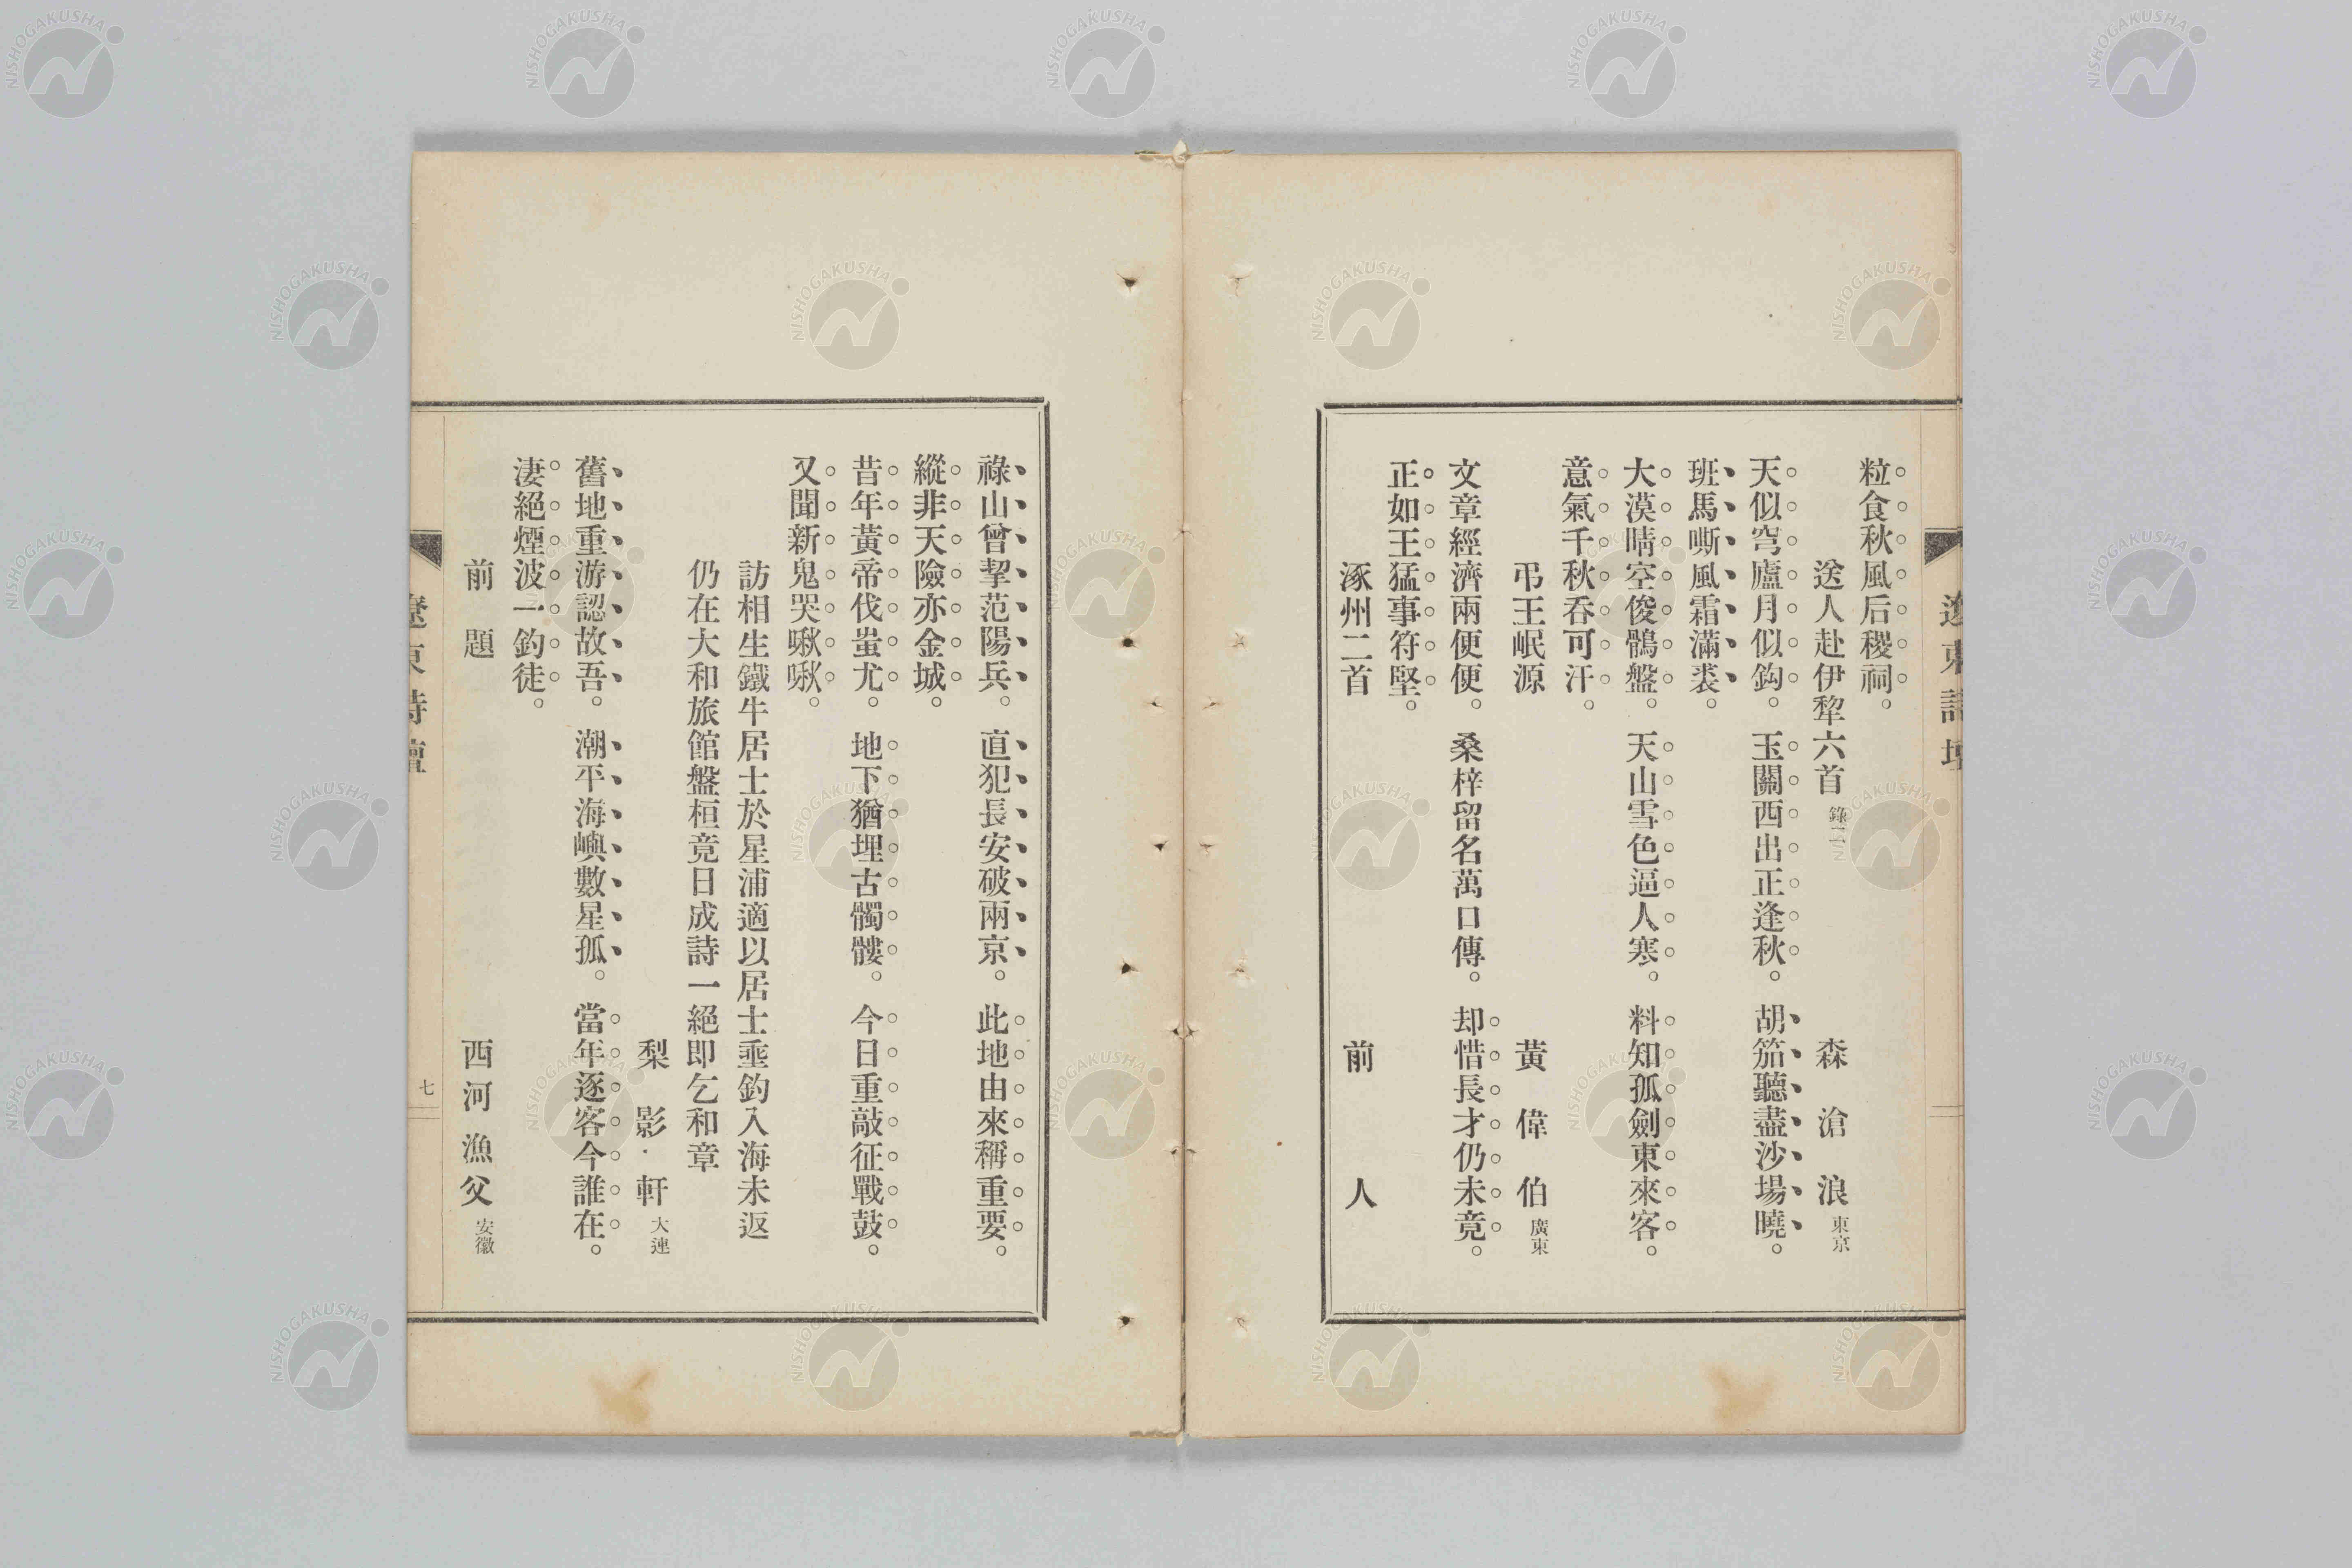 粒食秋風后稷祠。
送人赴伊犂六首 錄二 森滄浪 東京
天似穹廬月似鈎。玉關西出正逢秋。胡笳聽盡沙場曉。
班馬嘶風霜滿裘。
大漠晴空俊鶻盤。天山雪色逼人寒。料知孤劍東來客。
意氣千秋吞可汗。
弔王岷源 黃偉伯 廣東
文章經濟兩便便。桑梓留名萬口傳。却惜長才仍未竟。
正如王猛事符堅。
涿州二首 前人
祿山曾挈范陽兵。直犯長安破兩京。此地由來稱重要。
縱非天險亦金城。
昔年黃帝伐蚩尤。地下猶埋古髑髏。今日重敲征戰鼓。
又聞新鬼哭啾啾。
訪相生鐵牛居士於星浦適以居士垂釣入海未返
仍在大和旅館盤桓竟日成詩一絕即乞和章
梨影軒 大連
舊地重游認故吾。潮平海嶼數星孤。當年逐客今誰在。
淒絕煙波一釣徒。
前題 西河漁父 安徽
遼東詩壇
七
NISHOGAKUSHA